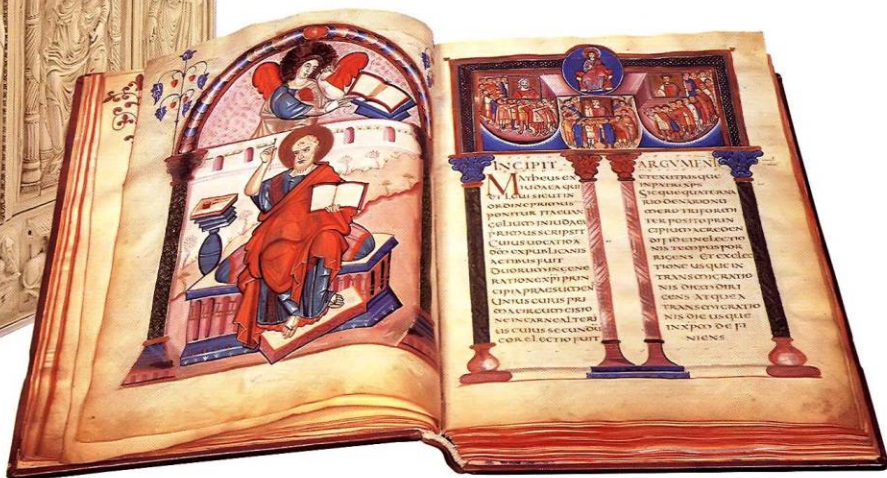 INCIPIT
MATHEUS EX
IUDAEA QUI
ET LEVI SICUT IN
ORDINE PRIMUS
PONITUR ITA EUAN
GELIUM IN IUDAEA
PRIMUS SCRIPSIT
CUIUS UOCATIO A
DOM EX PUBLICANIS
ACTIBUS FUIT
DUORUM IN GENE
RATIONE XPI PRIN
CIPIA PRAESUMEN
UNIUS CUIUS PRI
MA CIRCUMCISIO
NE IN CARNE ALTERI
US CUIUS SECUNDU
COR ELECTIO FUIT
ARGUMEN
ET EX UTRISQUE
IN PATRI XPS
SICQUE QUATERNA
RIO DENARIO NU
MERO TRIFORMI
TER POSITO PRIN
CIPIUM A CREDEN
DI FIDE IN ELECTIO
NIS TEMPUS POR
RIGENS ET EX ELEC
TIONE USQUE IN
TRANSMIGRATIO
NIS DIEM DIRI
GENS ATQUE A
TRANSMIGRATIO
NIS DIE USQUE
IN XPM DEFI
NIENS